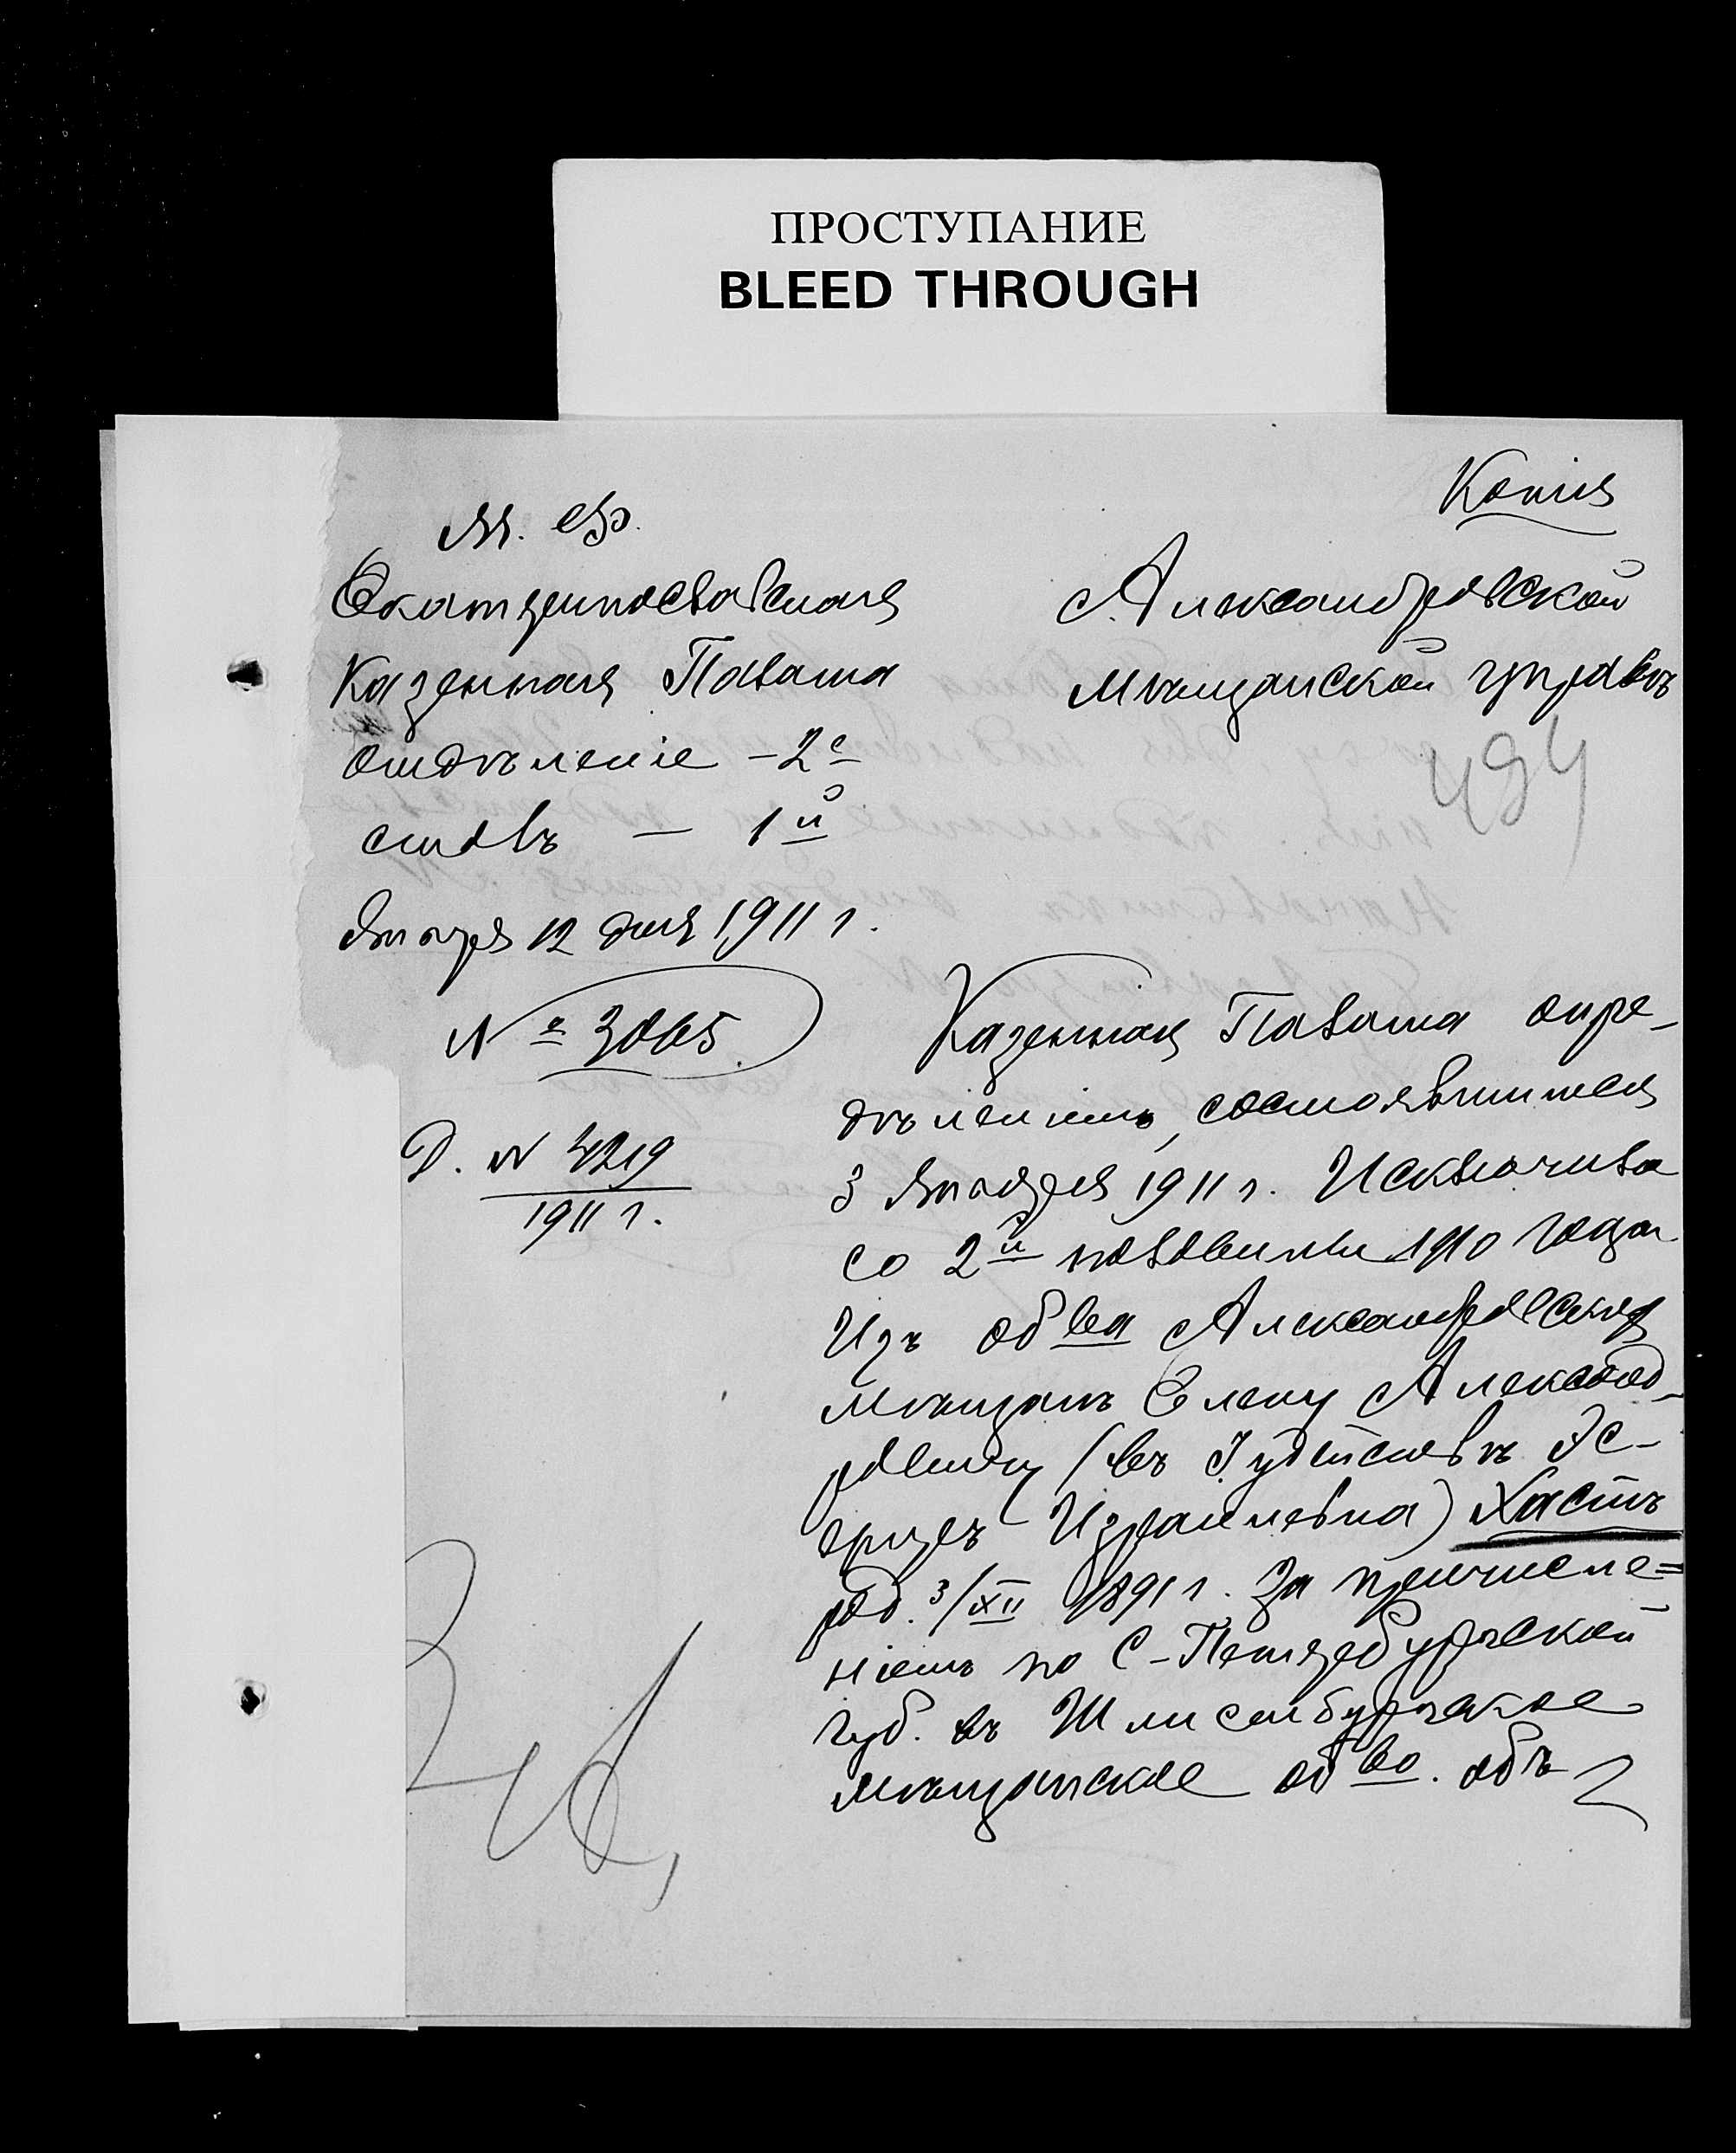 ПРОСТУПАНИЕ
BLEED THROUGH
Копія
М. Ф.
Екатеринославская
Казенная Палата
отдѣленіе – 2е
столъ – 1й
Января 12 дня 1911 г.
№ 3065
Д. № 4219
1911 г.
Александровской
Мѣщанской управѣ
494
Казенная Палата опре-
дѣленіемъ, состоявшимся
3 Января 1911 г. Исключила
со 2й половины 1910 года
Изъ об ва Александровскихъ
мѣщанъ Елену Александ-
ровну (въ Іудействѣ Эс-
еръ Израилевна) Хастъ
род. 3/XII 1891 г. За причисле=
ніемъ по С-Петербургской
губ. въ Шлисельбургское
мѣщанское об во. объ